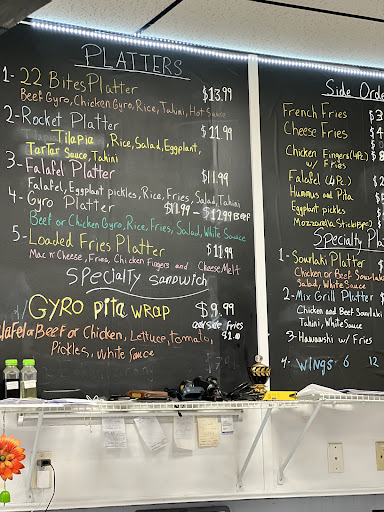 PLATTERS
1- 22 Bites Platter $13.99
Beef Gyro, Chicken Gyro, Rice, Tahini, Hot Sauce
2- Rocket Platter $11.99
Tilapia Tilapia, Rice, Salad, Eggplant,
Tartar Sauce, Tahini
3- Falafel Platter $11.99
Falafel, Eggplant pickles, Rice, Fries, Salad, Tahini
4- Gyro Platter $11.99 - $12.99 Beef
Beef or Chicken Gyro, Rice, Fries, Salad, White Sauce
5- Loaded Fries Platter $11.99
Mac n' Cheese, Fries, Chicken Fingers and Cheese Melt
Specialty Sandwich
GYRO pita WRAP $9.99
add Side Fries
$2.00
Beef or Chicken, Lettuce, tomato,
Pickles, white Sauce
Side Orde
French Fries $3
Cheese Fries $4
Chicken Fingers (4Pc.)
w/ Fries
Falafel (4Pc.) $2
Hummus and Pita
Eggplant pickles
Mozzarella Sticks
Specialty Pla
1- Souvlaki Platter
Chicken or Beef Souvlaki
Salad, White Sauce
2- Mix Grill Platter
Chicken and Beef Souvlaki
Tahini, White Sauce
3- Hawawshi w/ Fries
4- WINGS 6 12